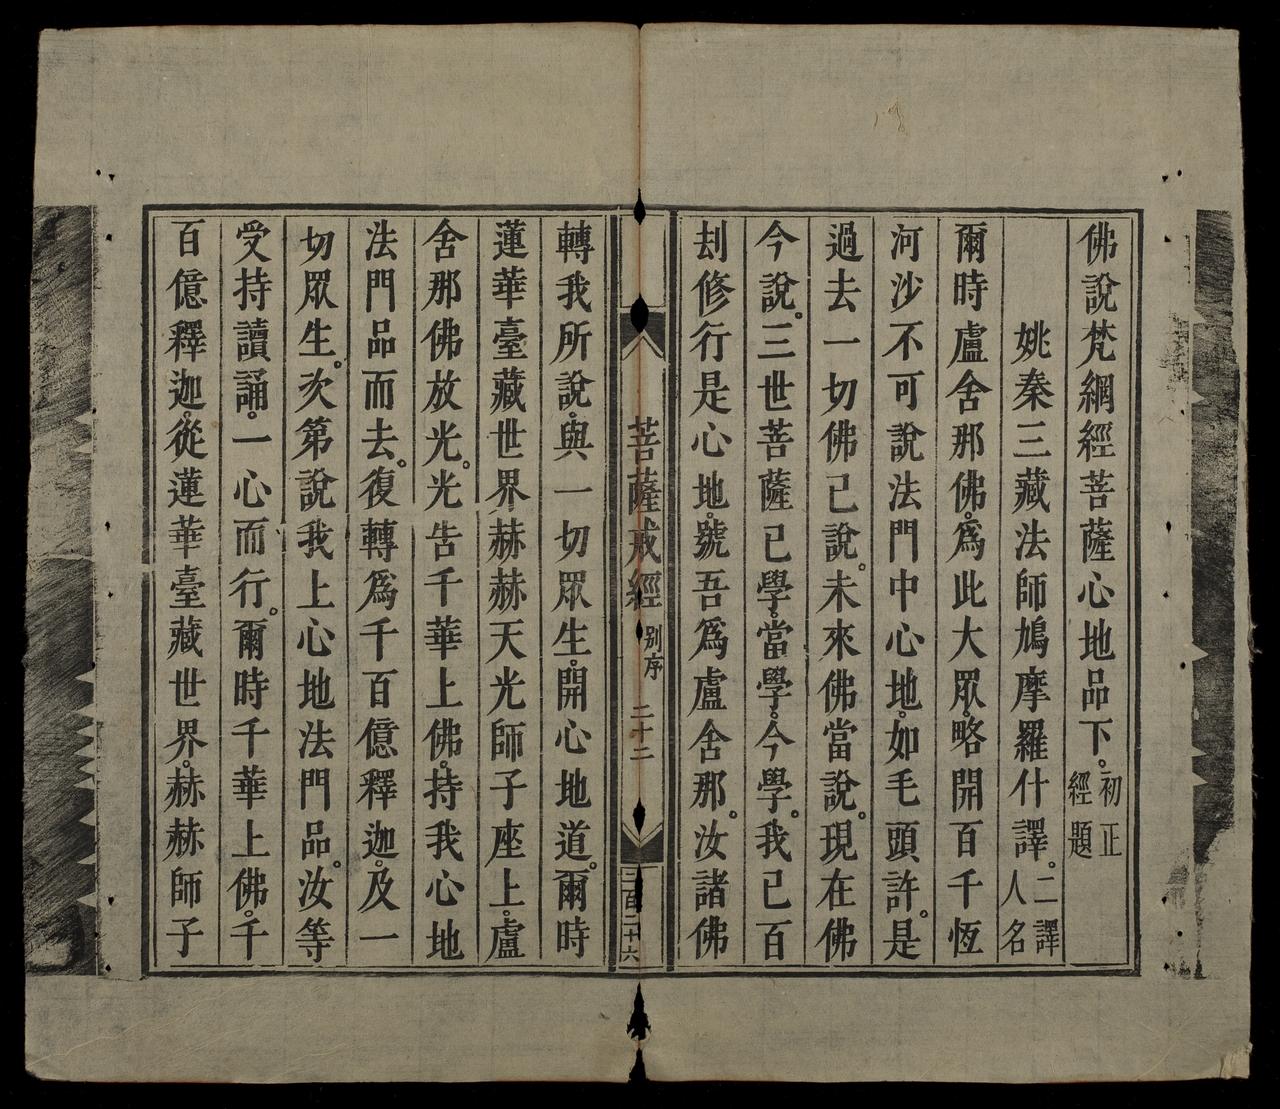 佛說梵網經菩薩心地品下。初正經題
姚秦三藏法師鳩摩羅什譯。二譯人名
爾時盧舍那佛。爲此大眾。略開百千恆
河沙不可說法門中心地。如毛頭許。是
過去一切佛已說。未來佛當說。現在佛
今說。三世菩薩已學。當學。今學。我已百
刦修行是心地。號吾爲盧舍那。汝諸佛
菩薩戒經 別序 二十二 二百二十六
轉我所說。與一切眾生。開心地道。爾時
蓮華臺藏世界。赫赫天光師子座上。盧
舍那佛放光。光告千華上佛。持我心地
法門品而去。復轉爲千百億釋迦。及一
切眾生。次第說我上心地法門品。汝等
受持讀誦。一心而行。爾時千華上佛。千
百億釋迦。從蓮華臺藏世界。赫赫師子